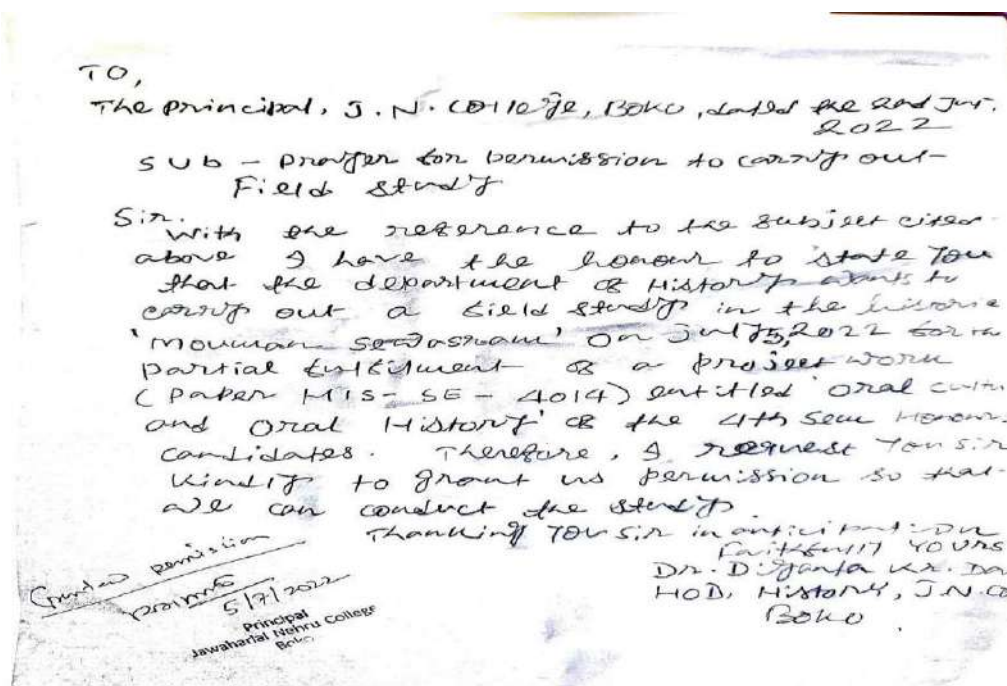 TO,
The Principal, J. N. College, Boko, dated the 2nd Jul.
2022
Sub - Prayer for permission to carry out
Field study
Sir.
With the reference to the subject cited
above I have the honour to state you
that the department of History wants to
carry out a field study in the historic
'Mouman Sewasram' on July 5, 2022 for
partial fulfilment of a project work
(Paper HIS-SE-4014) entitled 'Oral
and Oral History' of the 4th Sem
candidates. Therefore, I request you sir
kindly to grant us permission so that
we can conduct the study.
Thanking you sir in anticipation
Faithfully Yours
Dr. Diganta Kr. Da
HOD, History, J.N. Co
Boko.
Granted permission
5/7/2022
Principal
Jawaharlal Nehru College
Boko